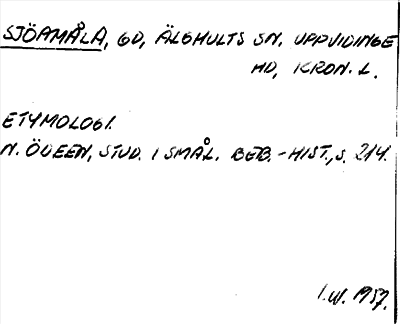 SJÖAMÅLA, GD, ÄLGHULTS SN. UPPVIDINGE
HD, KRON. L.
ETYMOLOGI.
N. ÖDEEN, STUD. I SMÅL. BEB.-HIST., S. 214.
I.W. 1957.